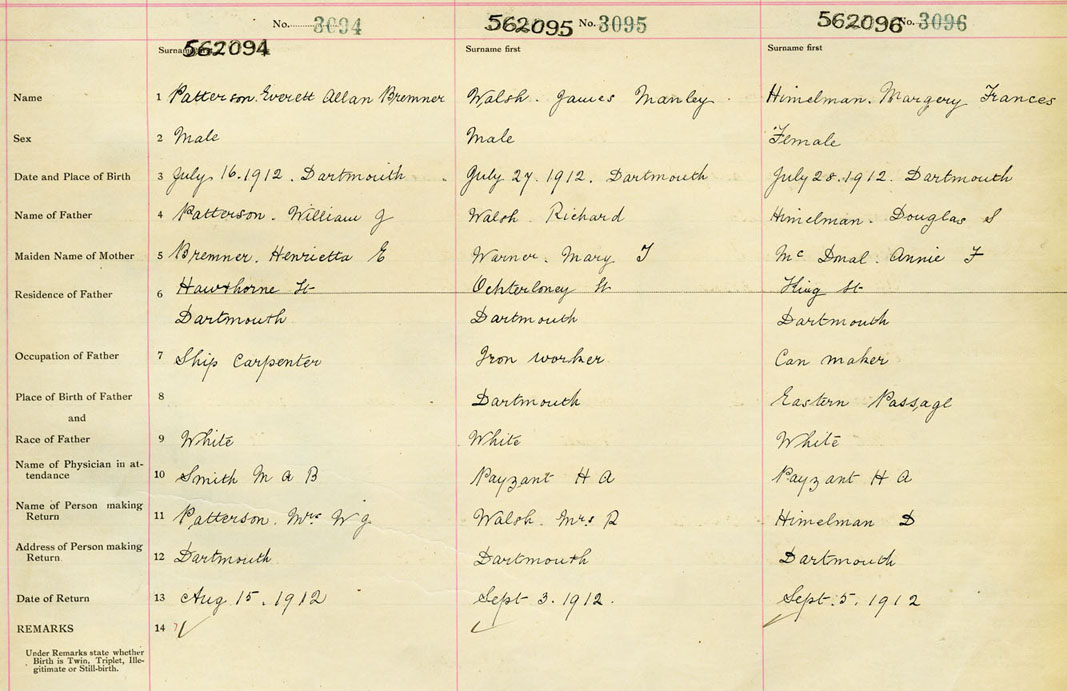 No. 3094 562095 No. 3095 562096 No. 3096
Surname first 562094 Surname first Surname first
Name 1 Patterson. Everett Allan Bremner Walsh. James Manley Himelman. Margery Frances
Sex 2 Male Male Female
Date and Place of Birth 3 July 16. 1912. Dartmouth July 27. 1912. Dartmouth July 28. 1912. Dartmouth
Name of Father 4 Patterson. William J Walsh. Richard Himelman. Douglas S
Maiden Name of Mother 5 Bremner. Henrietta E Warner. Mary T Mc Donal. Annie F
Residence of Father 6 Hawthorne St Ochterloney St King St
Dartmouth Dartmouth Dartmouth
Occupation of Father 7 Ship Carpenter Iron worker Can maker
Place of Birth of Father 8 Dartmouth Eastern Passage
and
Race of Father 9 White White White
Name of Physician in at-
tendance 10 Smith M A B Payzant H A Payzant H A
Name of Person making
Return 11 Patterson. Mrs W J. Walsh. Mrs R Himelman D
Address of Person making
Return 12 Dartmouth Dartmouth Dartmouth
Date of Return 13 Aug 15. 1912 Sept 3. 1912. Sept. 5. 1912
REMARKS 14
Under Remarks state whether
Birth is Twin, Triplet, Ille-
gitimate or Still-birth.